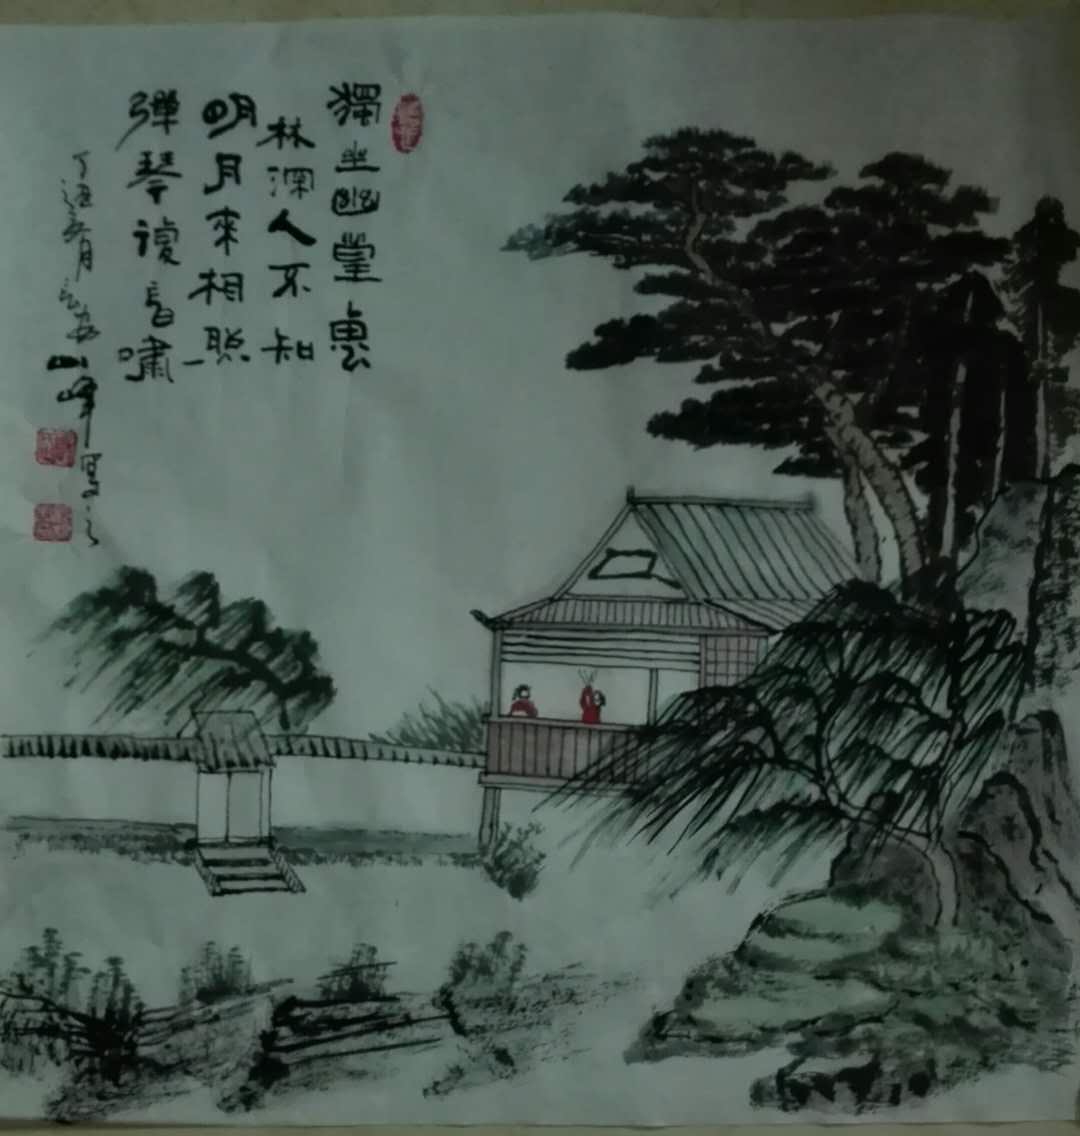 獨坐幽篁裏
林深人不知
明月來相照
彈琴復長嘯
丁 月 山峰寫之